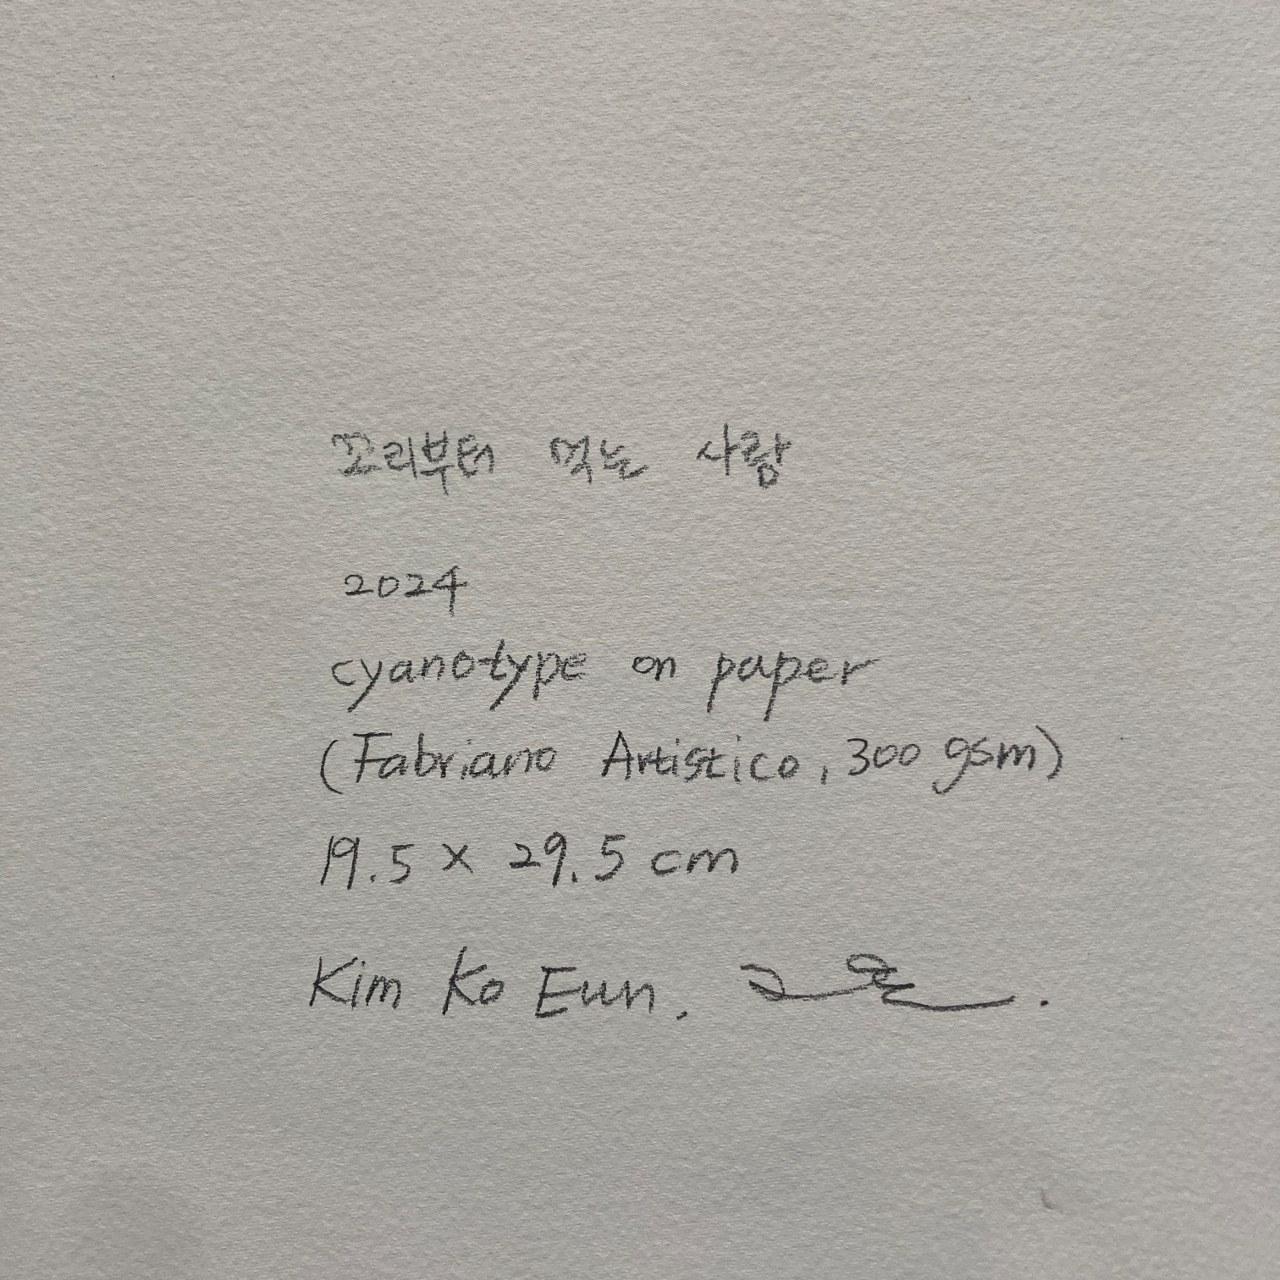 꼬리부터 먹는 사람
2024
cyanotype on paper
(Fabriano Artistico, 300 gsm)
19.5 x 29.5 cm
Kim Ko Eun.